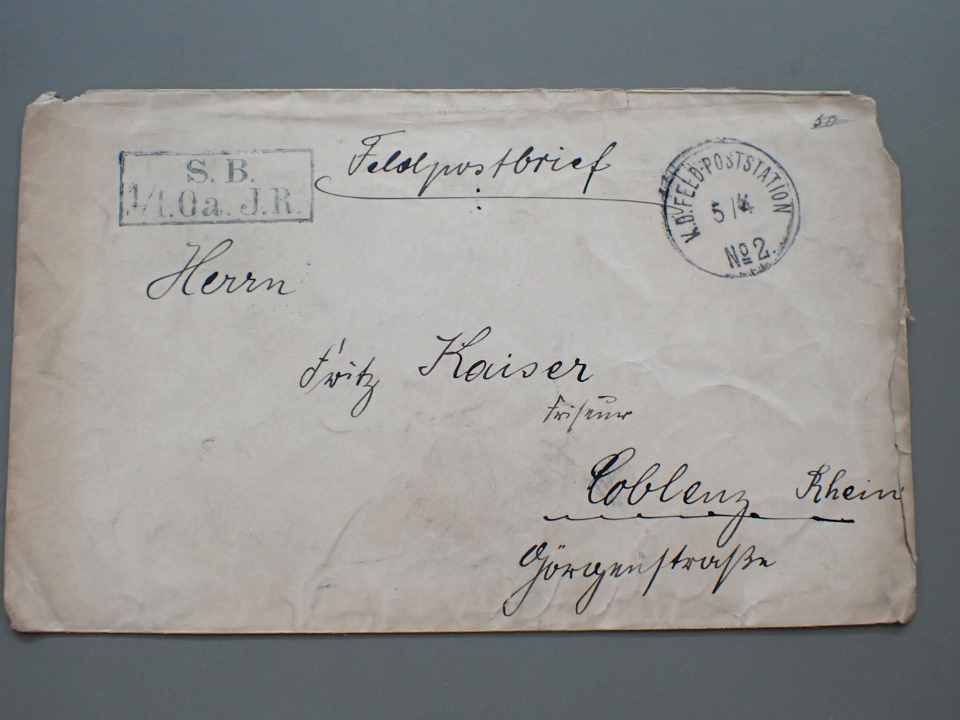 S. B.
1/1.Oa. J.R.
Feldpostbrief
50
K.D. FELD-POSTSTATION
5/4
No 2.
Herrn
Fritz Kaiser
Friseur
Coblenz Rhein
Görgenstraße